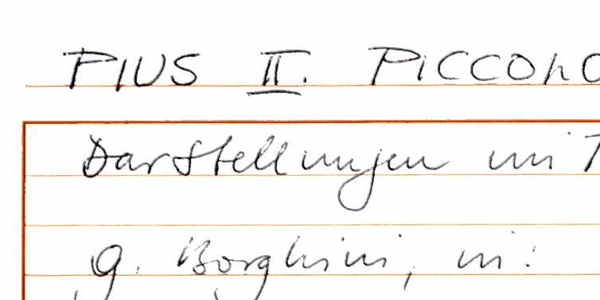 PIUS II. PICCOLO
Darstellungen im
G. Borghini, in: